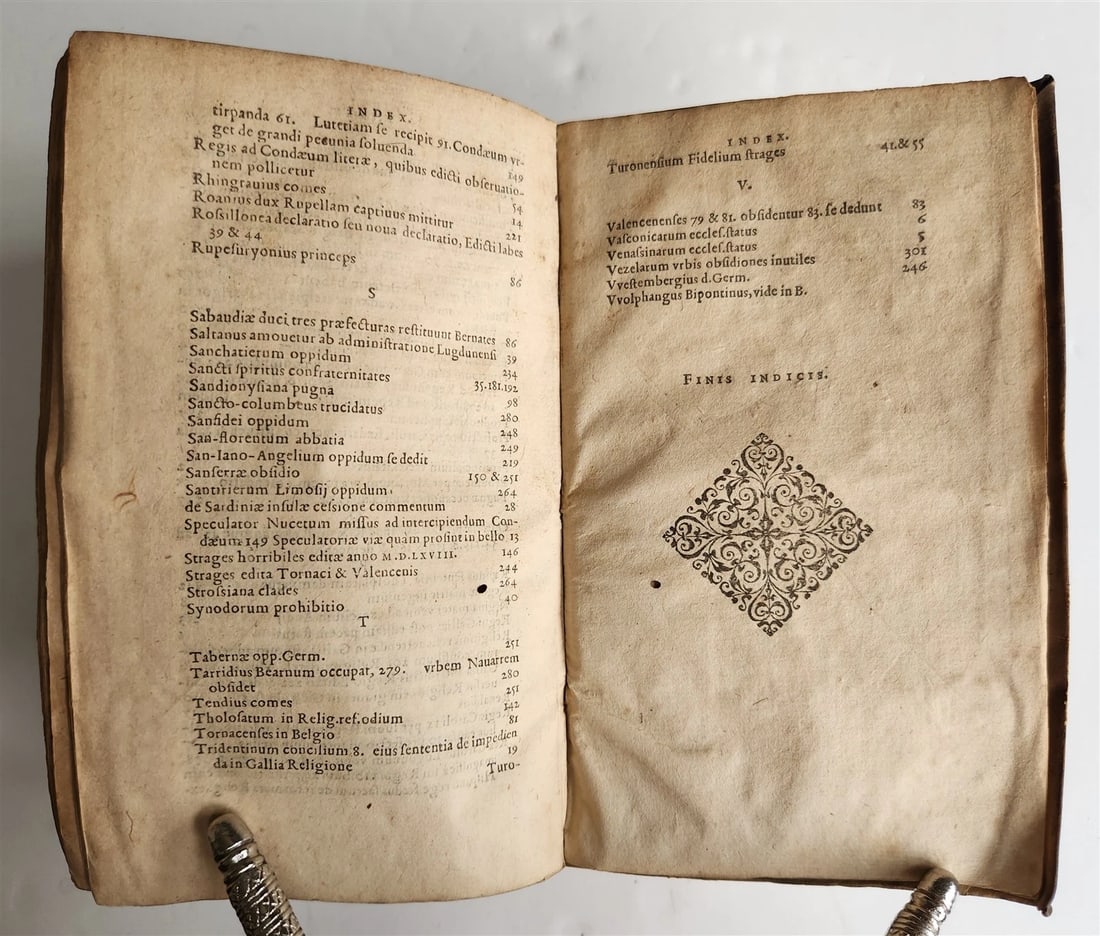 INDEX.
tirpanda 61. Lutetiam se recipit 91. Condæum vr-
get de grandi pecunia soluenda 149
Regis ad Condæum literæ, quibus edicti obseruatio-
nem pollicetur 54
Rhingrauius comes 14
Roanius dux Rupellam captiuus mittitur 221
Rossillonea declaratio seu noua declaratio, Edicti labes
39 & 44
Rupesuryonius princeps 86
S
Sabaudiæ duci tres præfecturas restituunt Bernates 86
Saltanus amouetur ab administratione Lugdunensi 39
Sanchatierum oppidum 234
Sancti spiritus confraternitates 35.181.192
Sandionysiana pugna 98
Sancto-columbeus trucidatus 280
Sanfidei oppidum 248
San-florentum abbatia 249
San-Iano-Angelium oppidum se dedit 219
Sanserræ obsidio 150 & 251
Santirierum Limosij oppidum 264
de Sardiniæ insulæ cessione commentum 28
Speculator Nucetum missus ad intercipiendum Con-
dæum 149 Speculatoriæ viæ quam prosint in bello 13
Strages horribiles editæ anno M.D.LXVIII. 146
Strages edita Tornaci & Valencenis 244
Strossiana clades 264
Synodorum prohibitio 40
T
Tabernæ opp. Germ. 251
Tarridius Bearnum occupat, 279. vrbem Nauarrem
obsidet 280
Tendius comes 251
Tholosatum in Relig. ref. odium 142
Tornacenses in Belgio 81
Tridentinum concilium 8. eius sententia de impedien
da in Gallia Religione 19
Turo-
INDEX.
Turonensium Fidelium strages 41.& 55
V.
Valencenenses 79 & 81. obsidentur 83. se dedunt 83
Vasconicarum eccles. status 6
Venassinarum eccles. status 5
Vezelarum vrbis obsidiones inutiles 301
Vvestembergius d. Germ. 246
Vvolphangus Bipontinus, vide in B.
FINIS INDICIS.